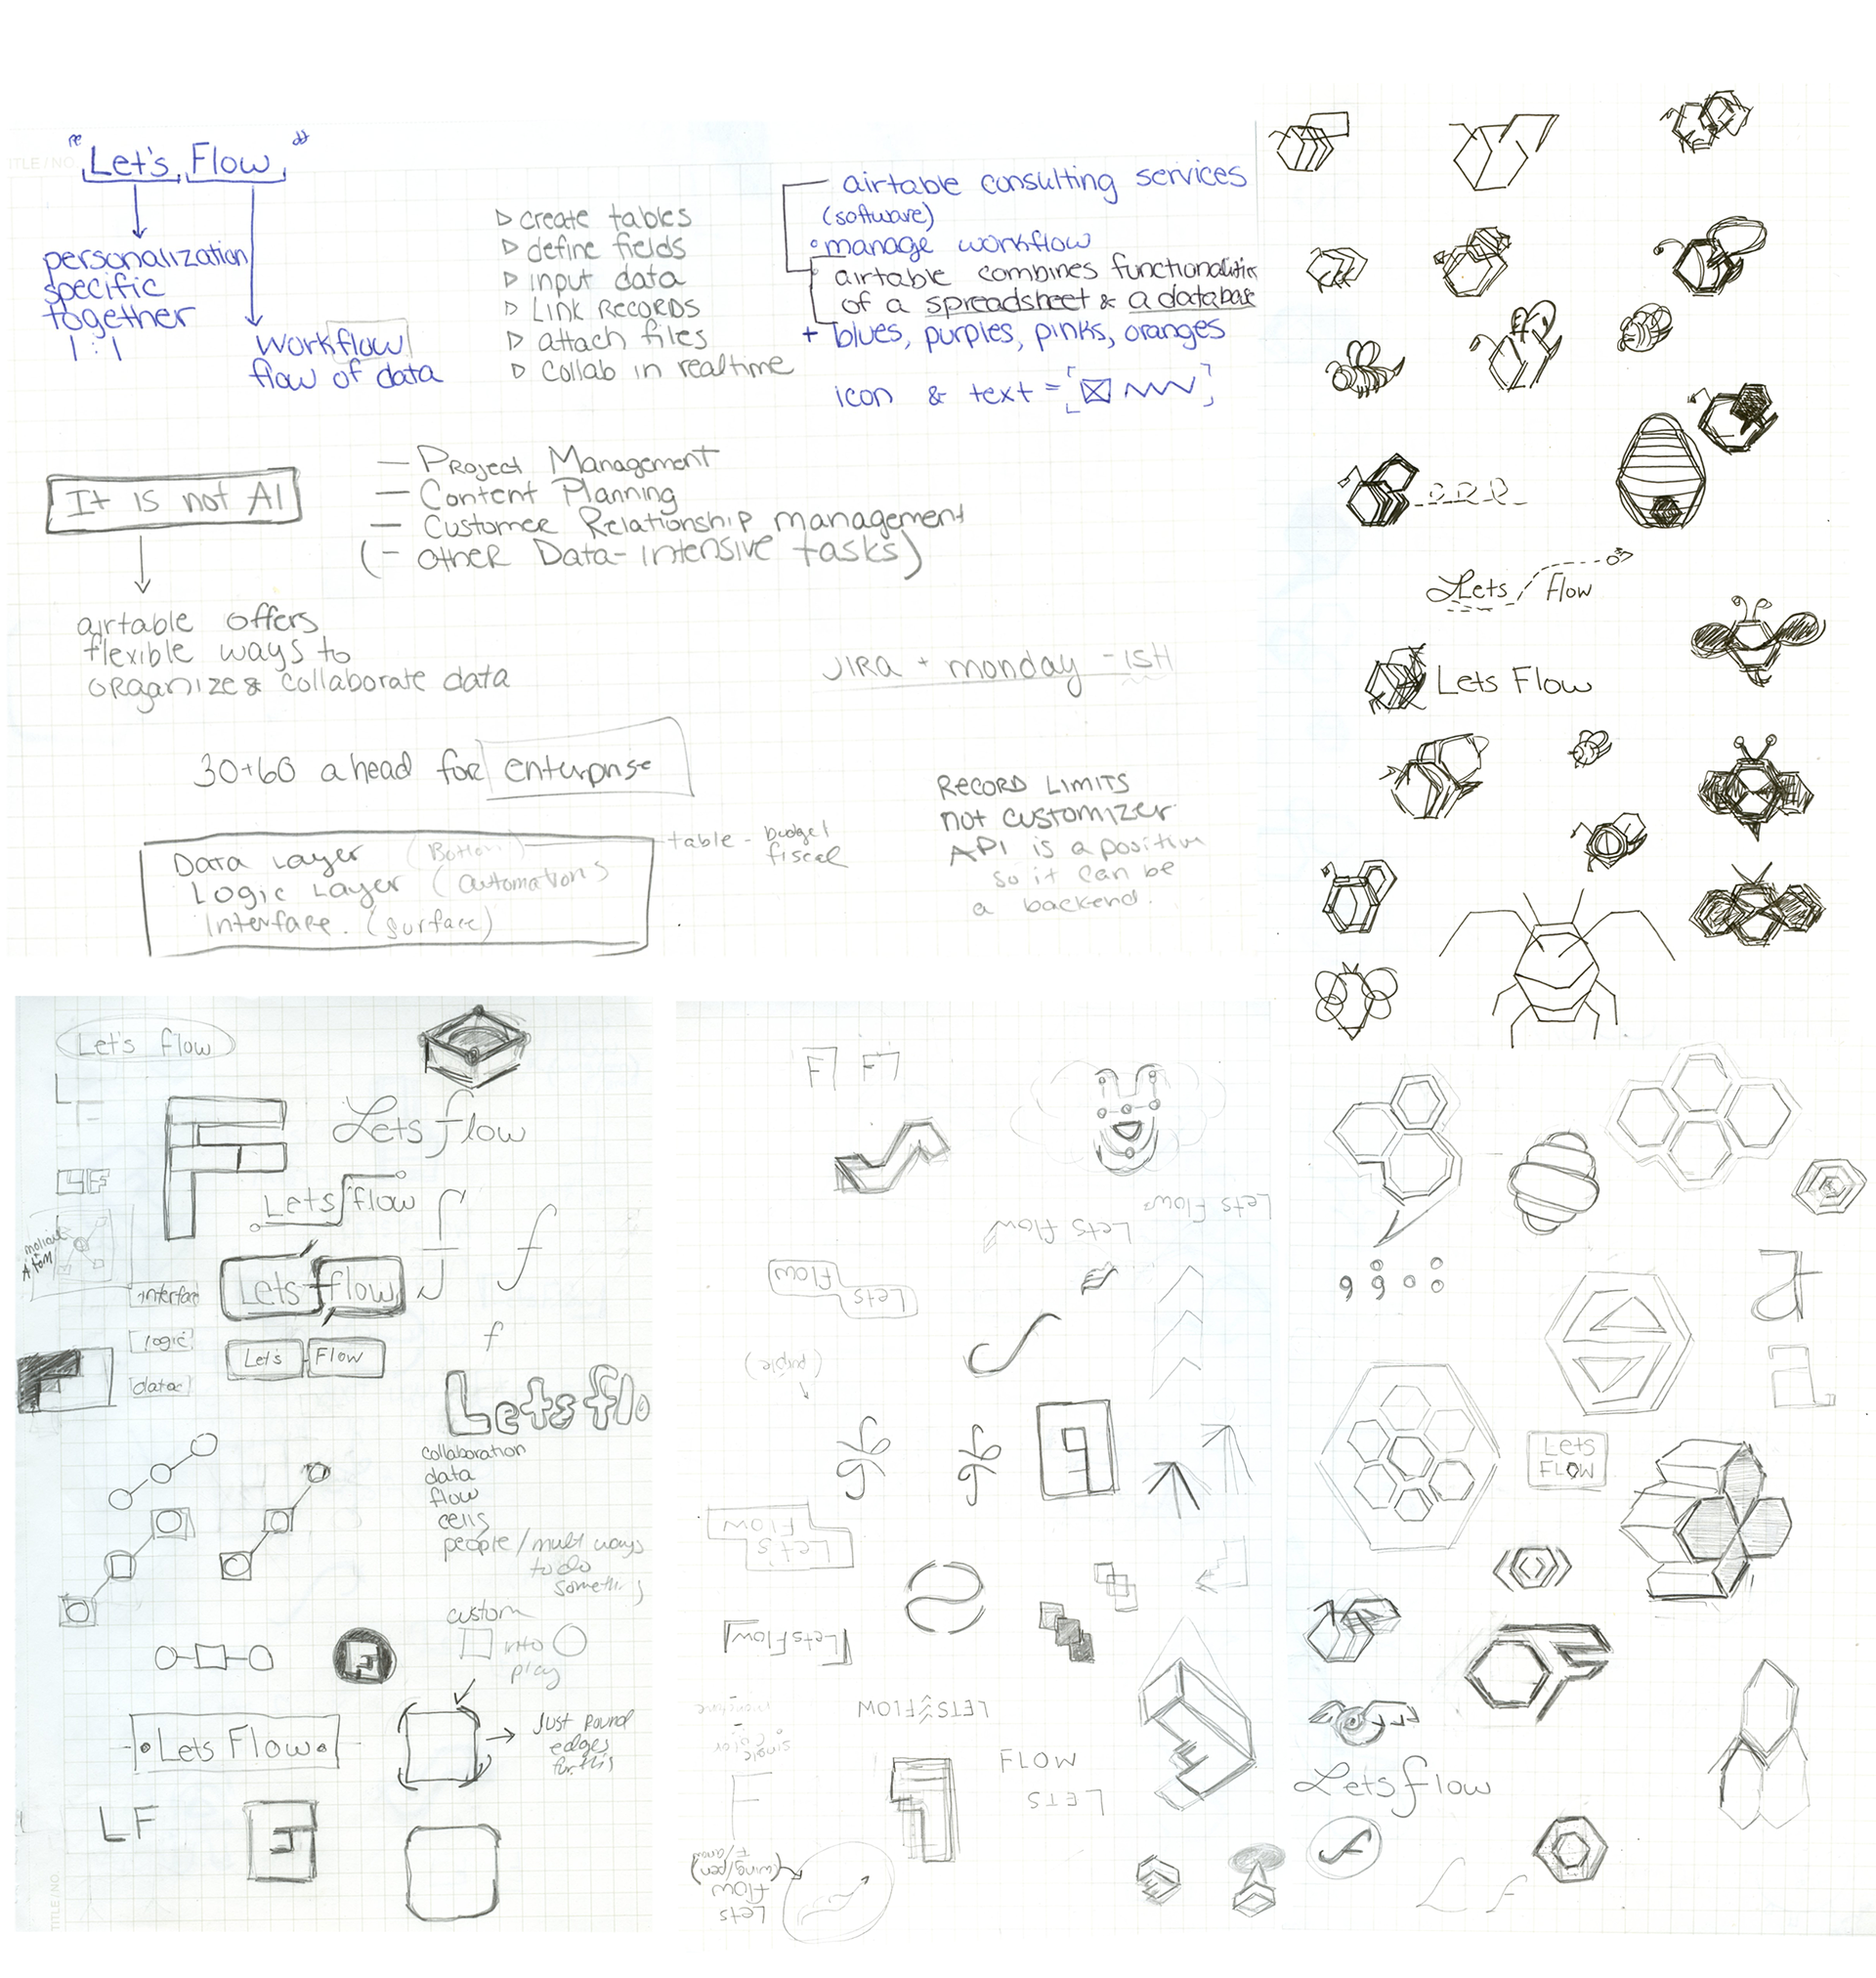 "Let's Flow"
personalization
specific
together
1:1
workflow
flow of data
▷ create tables
▷ define fields
▷ input data
▷ Link Records
▷ attach files
▷ collab in realtime
airtable consulting services
(software)
• manage workflow
airtable combines functionalities
of a spreadsheet & a database
+ blues, purples, pinks, oranges
icon & text =
It is not AI
— Project Management
— Content Planning
— Customer Relationship management
(- other Data-intensive tasks)
airtable offers
flexible ways to
organize & collaborate data
JIRA + monday -ISH
30+60 ahead for enterprise
Data Layer (Bottom)
Logic Layer (automations)
Interface. (surface)
table - budget
fiscal
RECORD LIMITS
not customizer
API is a positive
so it can be
a backend.
Lets Flow
Lets Flow
Let's flow
L
F
LF
Lets flow
Lets flow
Atom
interface
logic
data
Lets flow
Let's Flow
f
Lets flo
collaboration
data
flow
cells
people/mult ways
to do
something
custom
into
play
Lets Flow
Just round
edges
for this
LF
TITLE/NO
F7 F7
Lets Flow
Lets flow
Lets
Flow
(purple)
Let's
Flow
Lets Flow
LETS FLOW
single
color
FLOW
LETS
F/arrow
(wing/pen)
flow
Lets
a
a
Lets
FLOW
Lets flow
f
L f